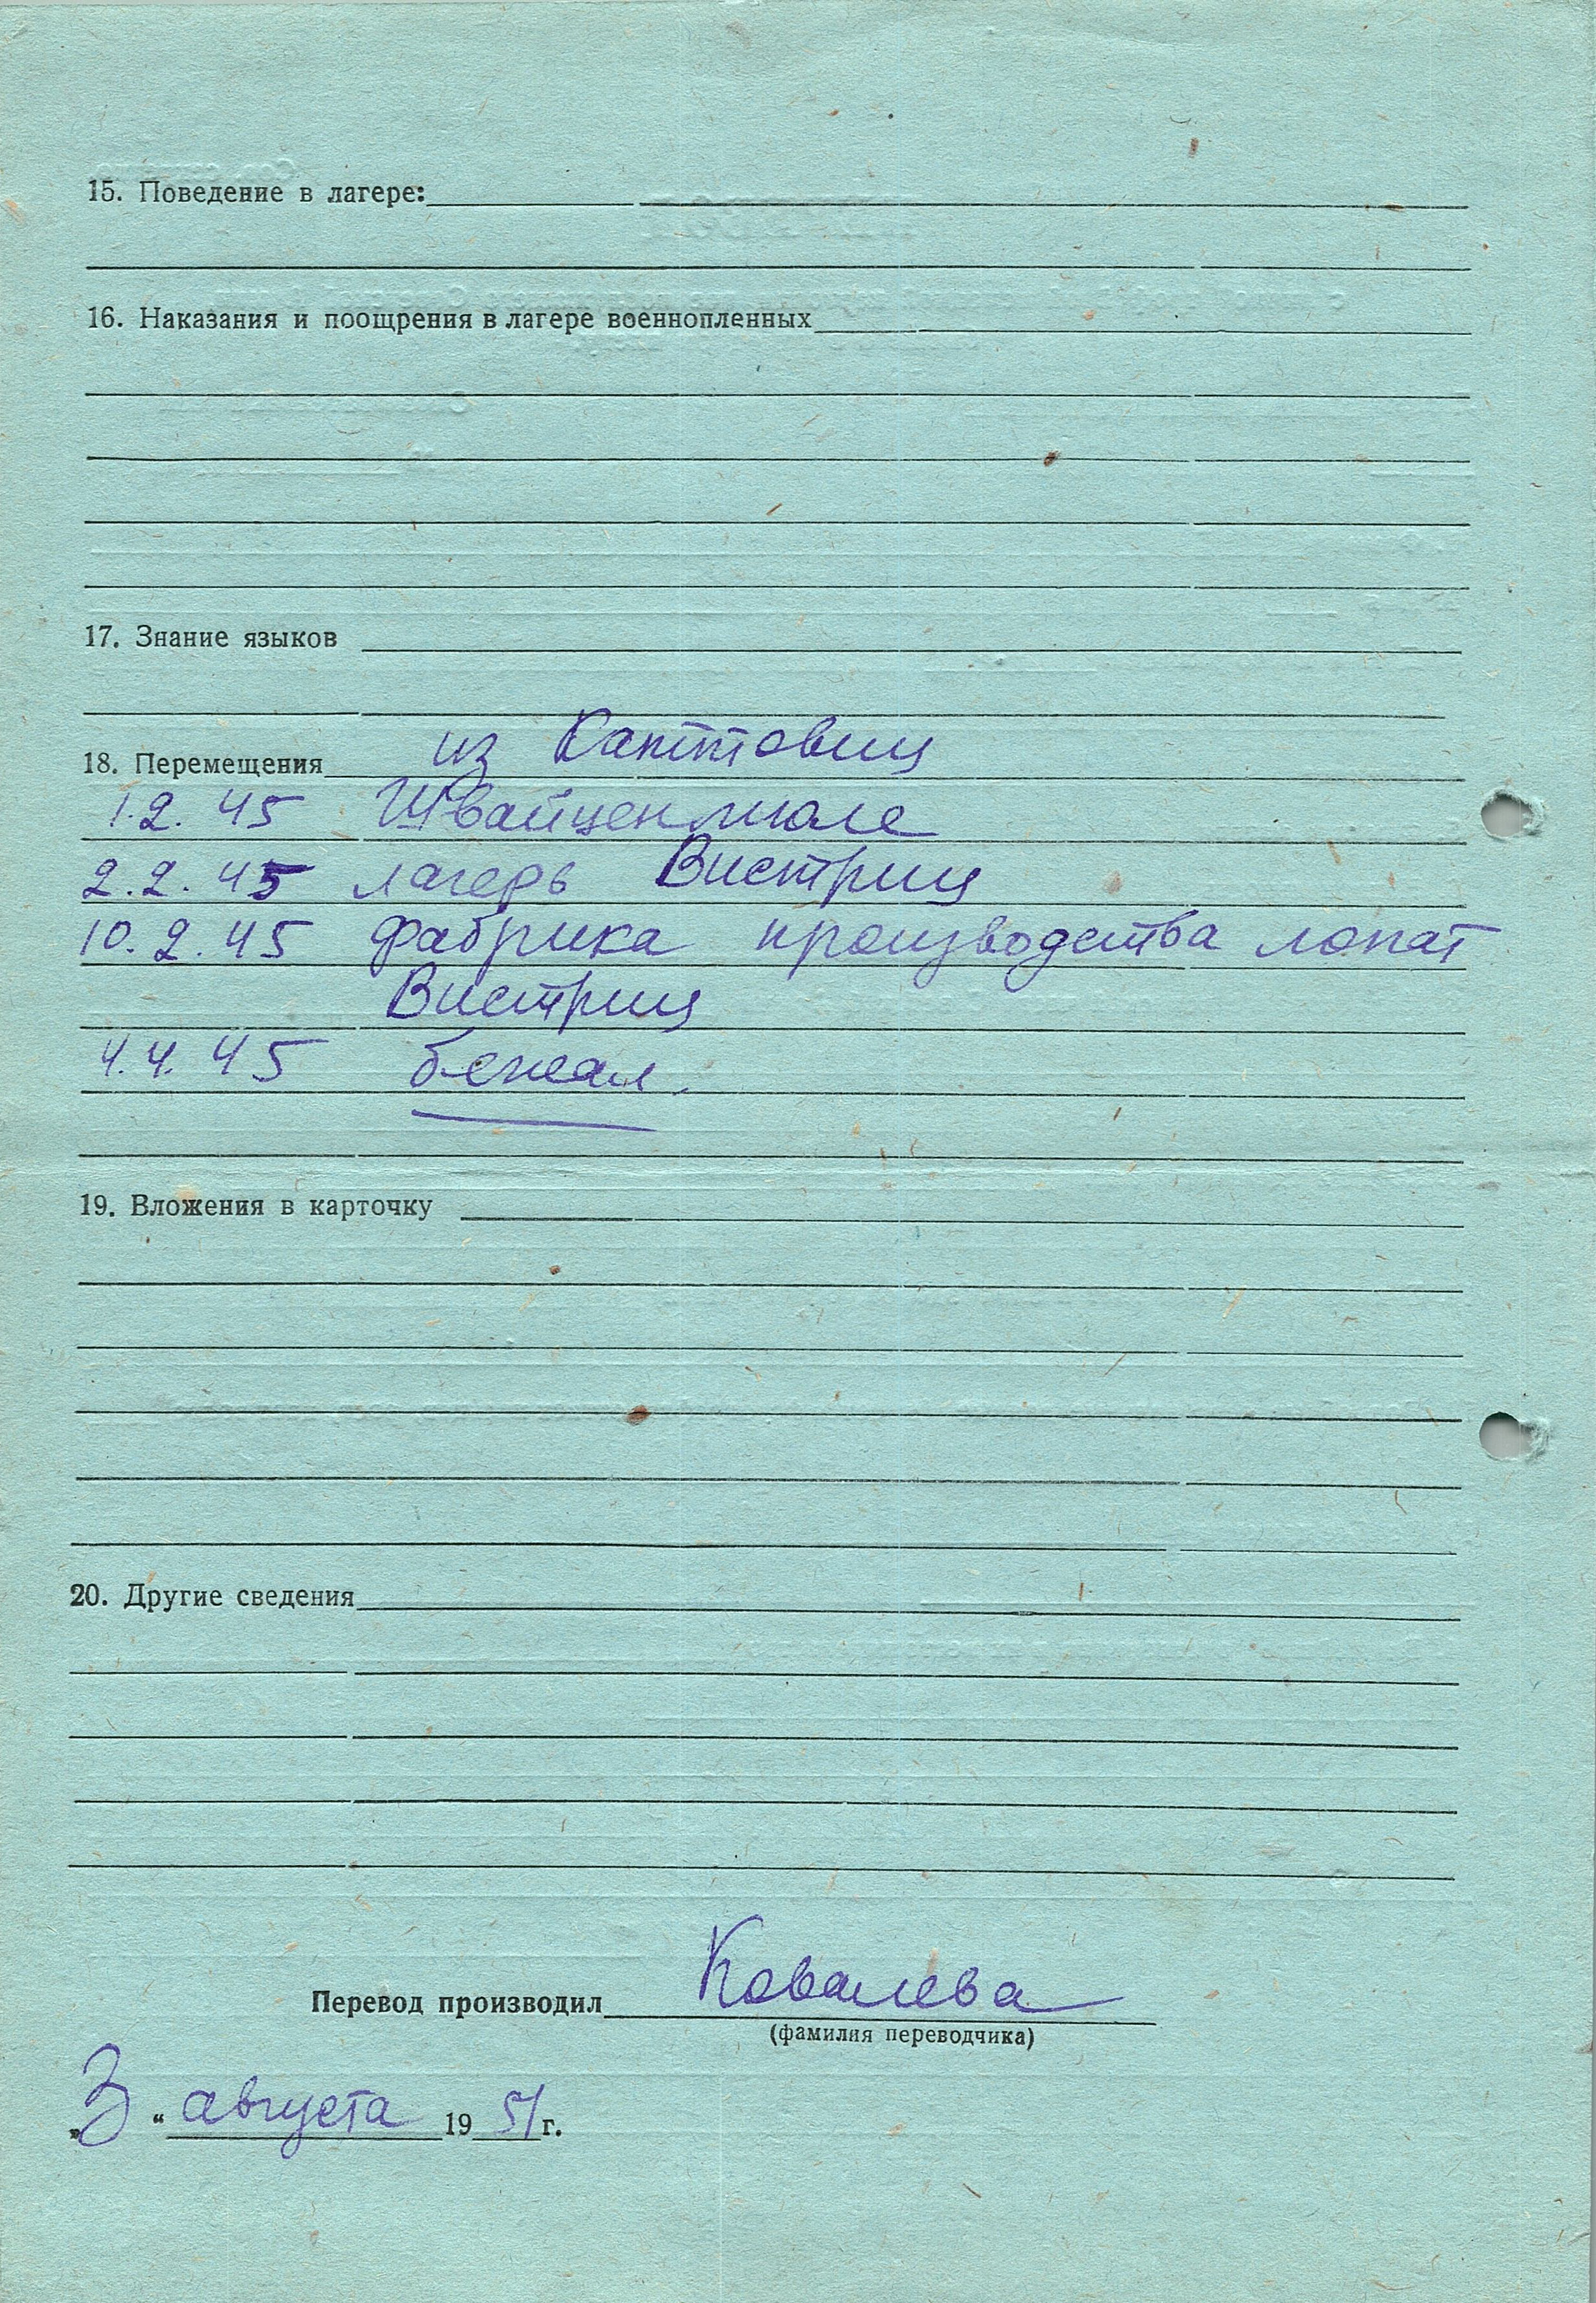 15. Поведение в лагере:
16. Наказания и поощрения в лагере военнопленных
17. Знание языков
18. Перемещения из Каттовиц
1.2.45 Швайценмюле
2.2.45 лагерь Вистриц
10.2.45 фабрика производства лопат
Вистриц
4.4.45 бежал.
19. Вложения в карточку
20. Другие сведения
Перевод производил Ковалева
(фамилия переводчика)
„3“ августа 1951 г.